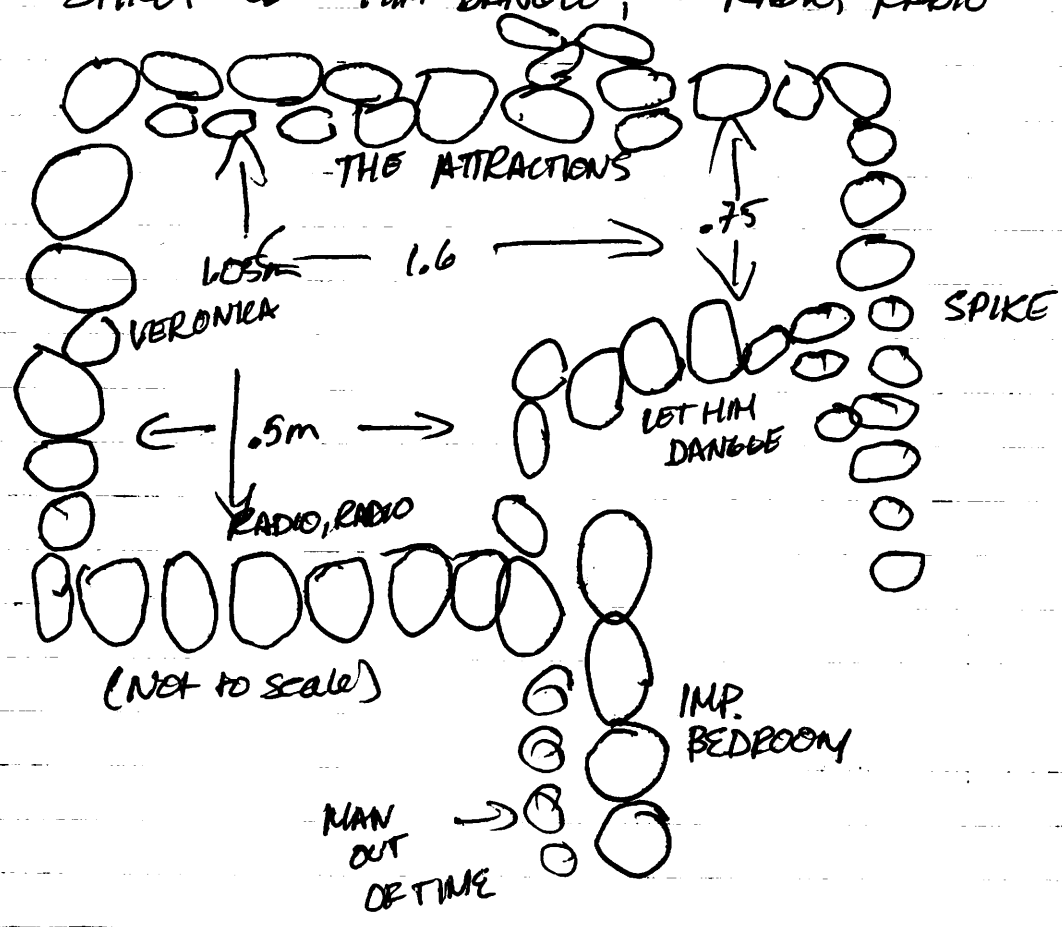 HIM DANGLE, RADIO, RADIO
THE ATTRACTIONS
.75
1.6
1.05m
VERONICA
SPIKE
.5m
LET HIM
DANGLE
RADIO, RADIO
(NOT to scale)
IMP.
BEDROOM
MAN
OUT
OF TIME